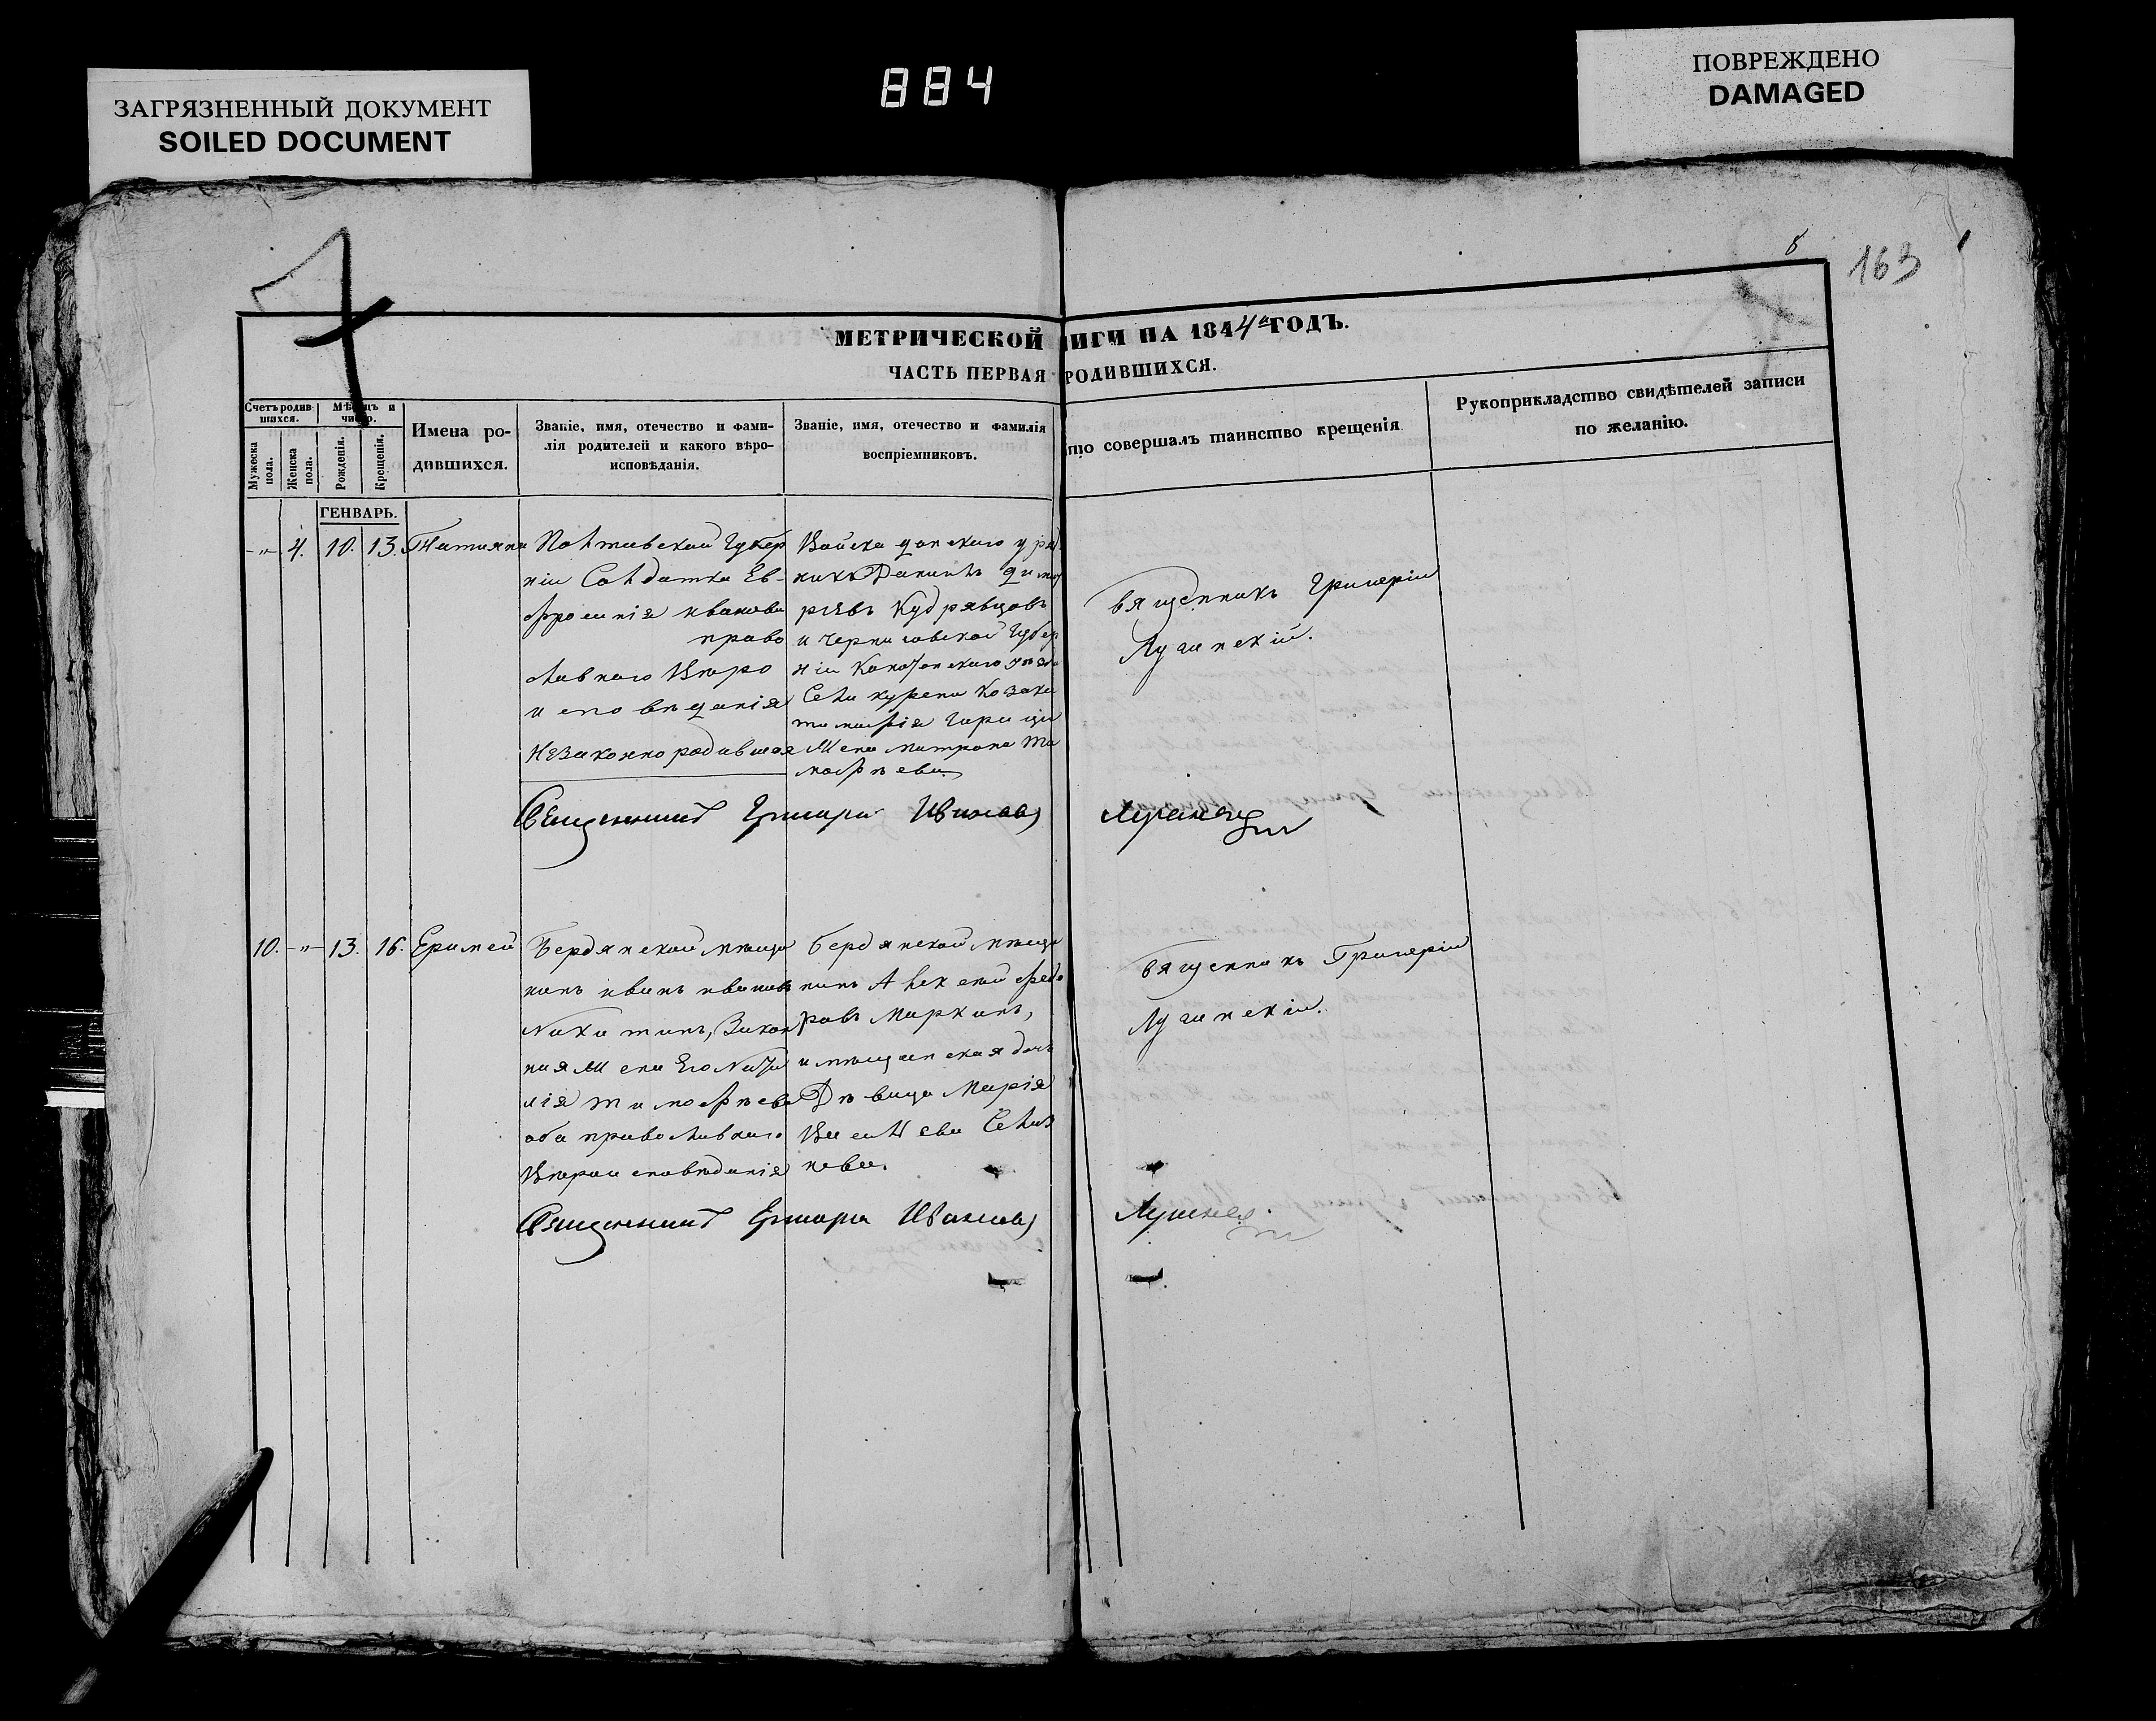 884
ЗАГРЯЗНЕННЫЙ ДОКУМЕНТ
SOILED DOCUMENT
ПОВРЕЖДЕНО
DAMAGED
163
МЕТРИЧЕСКОЙ ИГИ НА 1844й ГОДЪ.
ЧАСТЬ ПЕРВАЯ РОДИВШИХСЯ.
Счетъ родив-
шихся.
Мужеска пола.
Женска пола.
Мѣсяцъ и
число.
Рожденія.
Крещенія.
Имена ро-
дившихся.
Званіе, имя, отечество и фами-
лія родителей и какого вѣро-
исповѣданія.
Званіе, имя, отечество и фамилія
воспріемниковъ.
то совершалъ таинство крещенія
Рукоприкладство свидѣтелей записи
по желанію.
ГЕНВАРЬ.
-"- 4. 10. 13. Татияна
Полтавской Губер
ніи Солдатка Ев-
фросинія иванова
право
славнаго Вѣро
исповѣданія
Незаконнородившая
Войска донскаго уряд
никъ Данилъ дмит
ріевъ Кудрявцовъ
и черниговской Губер
ніи Конотопскаго уѣзда
Села курени Козака
тимофія
жена матрона Ти
мофѣева
вященникъ Григорій
Лущинскій.
Священникъ Григорій Ивановъ
10. -"- 13. 16. Еримей
Бердянской мѣща
нинъ иванъ ивановъ
Никитинъ, Закон
ная жена Его Ната
лія тимофѣева
оба православнаго
Вѣроисповѣданія
бердянской мѣща
нинъ Алексѣй Федо
ровъ Маркинъ,
и мѣщанская дочь
Дѣвица Марія
Васильева Селив
нова.
вященникъ Григорій
Лущинскій.
Священникъ Григорій Ивановъ